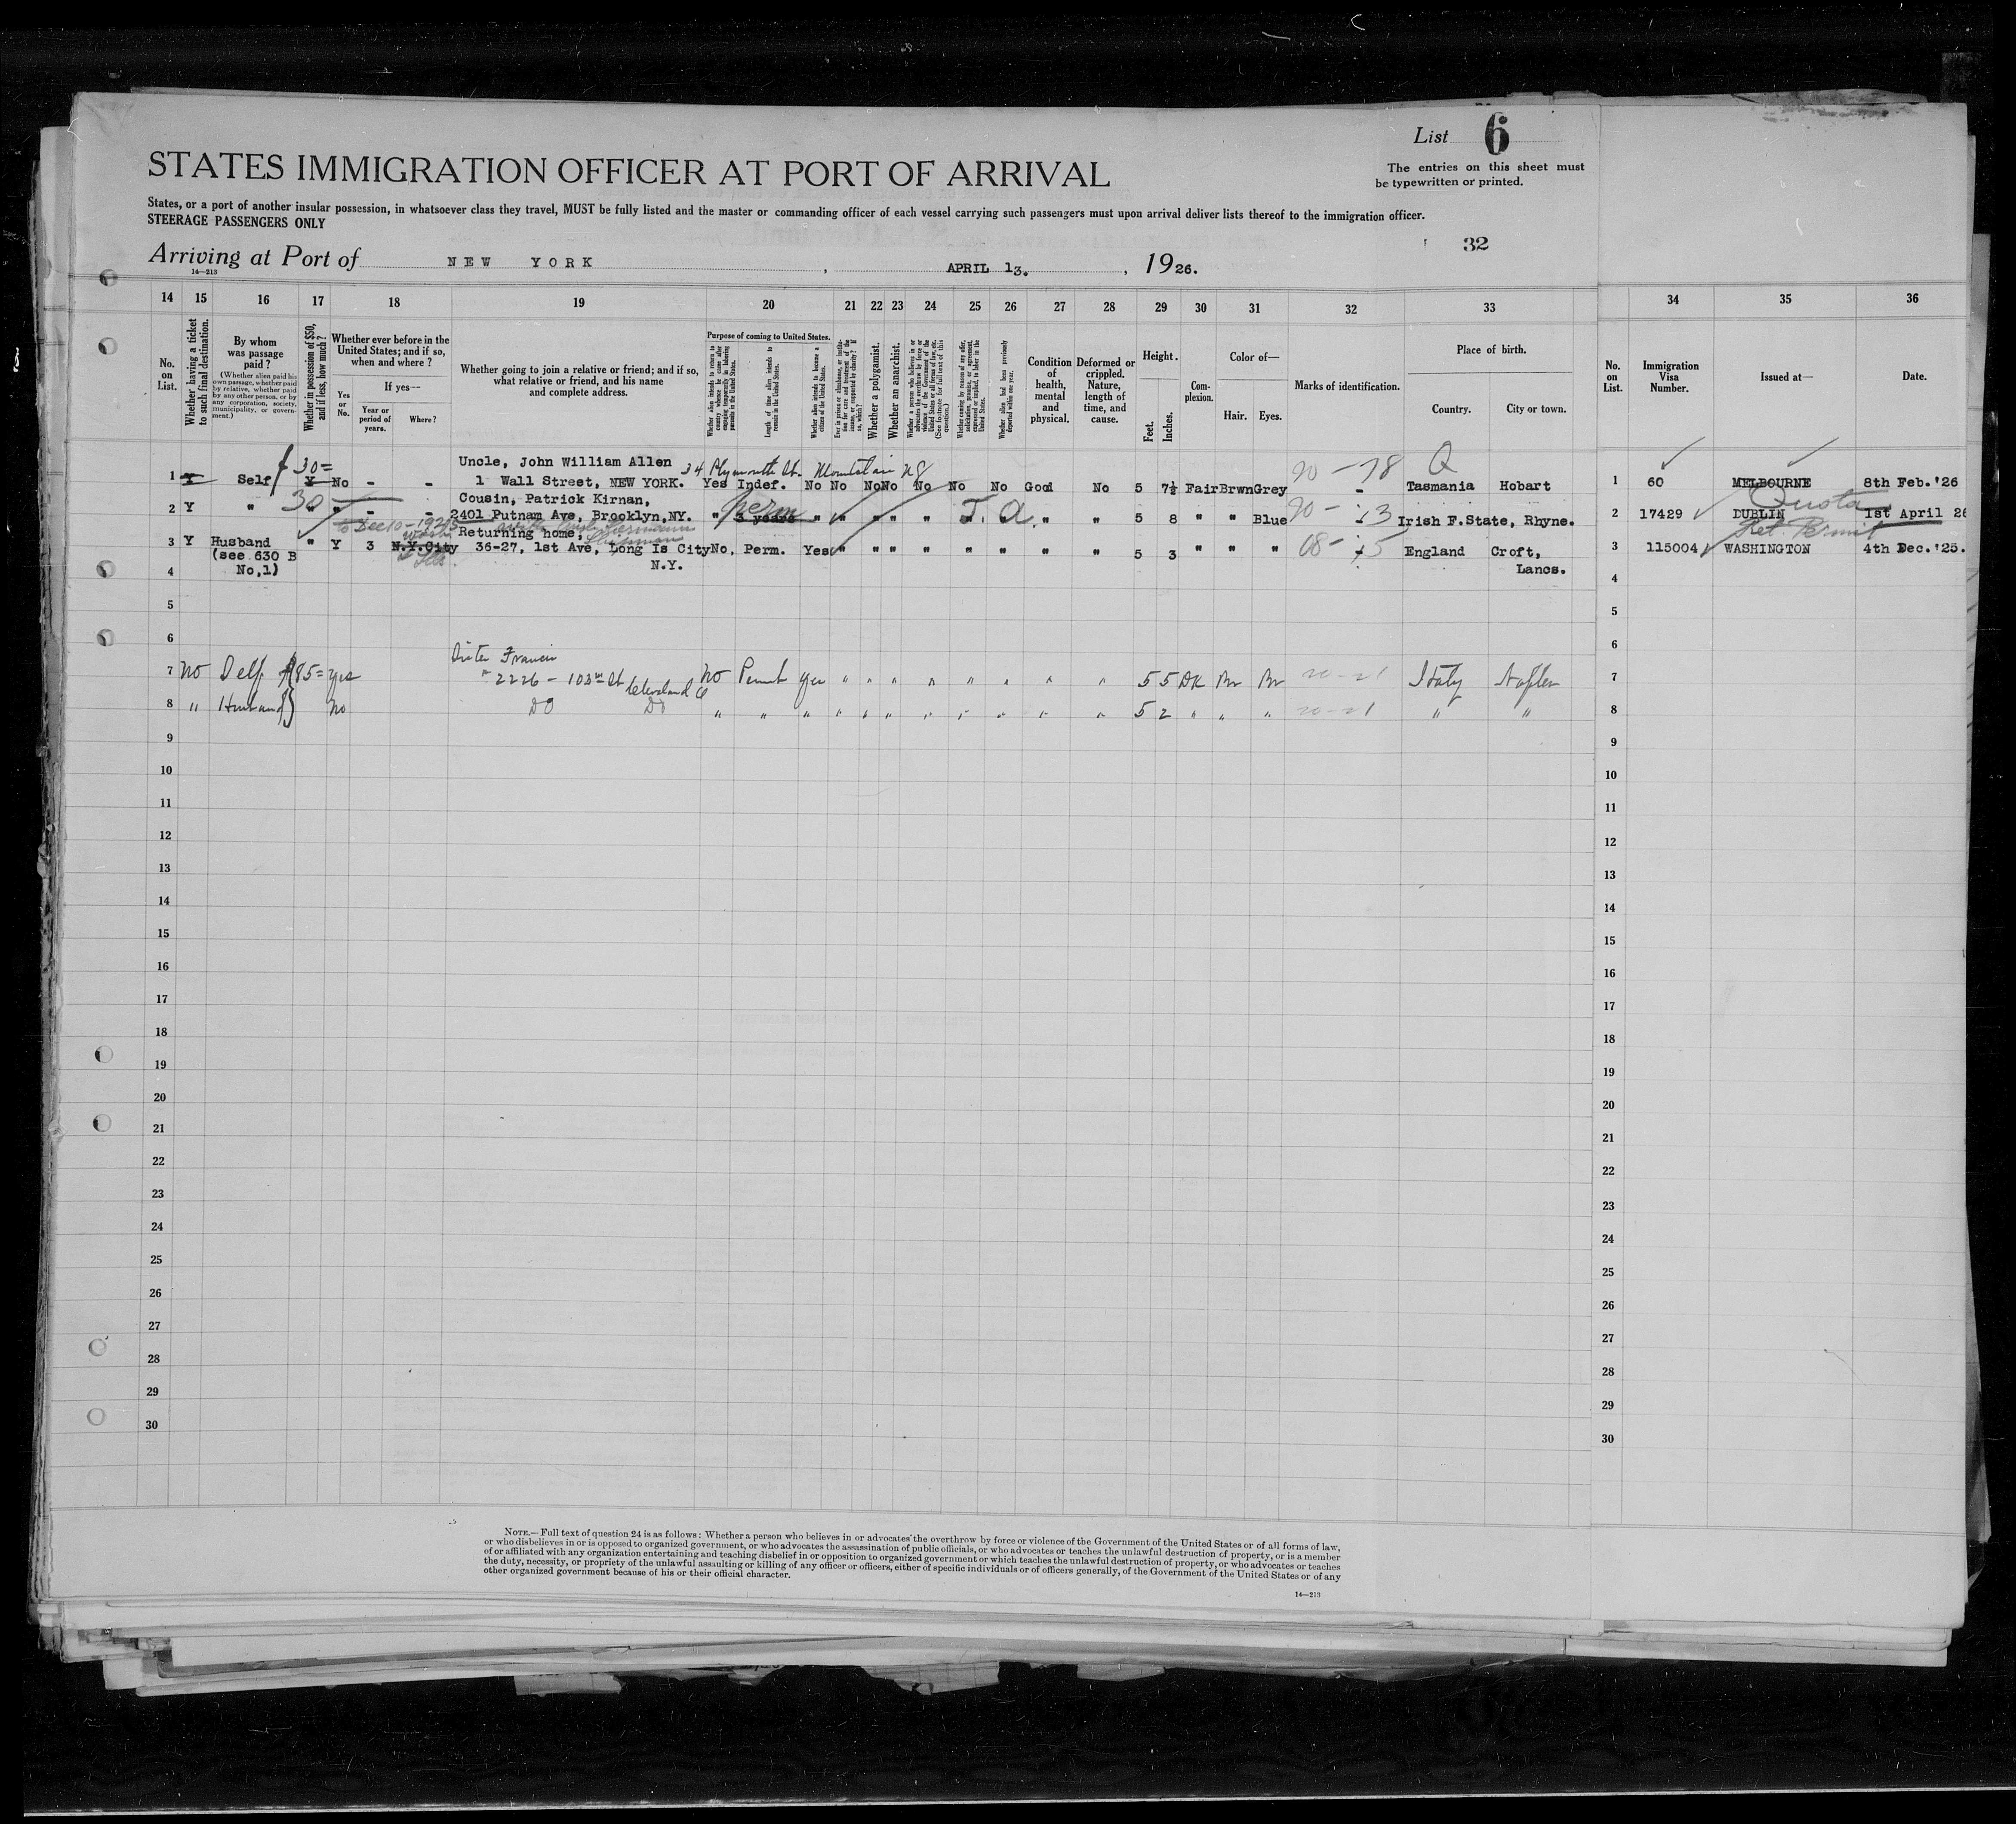 List 6
The entries on this sheet must
be typewritten or printed.
STATES IMMIGRATION OFFICER AT PORT OF ARRIVAL
States, or a port of another insular possession, in whatsoever class they travel, MUST be fully listed and the master or commanding officer of each vessel carrying such passengers must upon arrival deliver lists thereof to the immigration officer.
STEERAGE PASSENGERS ONLY
32
Arriving at Port of NEW YORK, APRIL 13., 1926.
14—213
14 15 16 17 18 19 20 21 22 23 24 25 26 27 28 29 30 31 32 33 34 35 36
No. on List.
Whether having a ticket to such final destination.
By whom was passage paid?
(Whether alien paid his own passage, whether paid by relative, whether paid by any other person, or by any corporation, society, municipality, or government.)
Whether in possession of $50, and if less, how much?
Whether ever before in the United States; and if so, when and where?
Yes or No.
If yes—
Year or period of years.
Where?
Whether going to join a relative or friend; and if so, what relative or friend, and his name and complete address.
Purpose of coming to United States.
Whether alien intends to return to country whence he came after engaging temporarily in laboring pursuits in the United States.
Length of time alien intends to remain in the United States.
Whether alien intends to become a citizen of the United States.
Ever in prison or almshouse, or institution for care and treatment of the insane, or supported by charity? If so, which?
Whether a polygamist.
Whether an anarchist.
Whether a person who believes in or advocates the overthrow by force or violence of the Government of the United States or all forms of law, etc. (See footnote for full text of this question.)
Whether coming by reason of any offer, solicitation, promise, or agreement, expressed or implied, to labor in the United States.
Whether alien had been previously deported within one year.
Condition of health, mental and physical.
Deformed or crippled. Nature, length of time, and cause.
Height.
Feet. Inches.
Complexion.
Color of—
Hair. Eyes.
Marks of identification.
Place of birth.
Country. City or town.
No. on List.
Immigration Visa Number.
Issued at—
Date.
$30=
Uncle, John William Allen 34 Plymouth St. Mountclair NJ 20-78 Q
1 Y Self Y No - - 1 Wall Street, NEW YORK. Yes Indef. No No No No No No No Good No 5 7½ Fair Brwn Grey - Tasmania Hobart 1 60 MELBOURNE 8th Feb.'26
30 Cousin, Patrick Kirnan, Perm Quota
2 Y " " " - - 2401 Putnam Ave, Brooklyn, NY. " 3 years " " " " " J. A. " " 5 8 " " Blue Irish F.State, Rhyne. 2 17429 DUBLIN 1st April 26
to Dec 10-1925 Returning home, Ret. Permit
3 Y Husband " Y 3 N.Y.City 36-27, 1st Ave, Long Is City No, Perm. Yes " " " " " " " " 5 3 " " " England Croft, 3 115004 WASHINGTON 4th Dec.'25.
(see 630 B
4 No,1) N.Y. Lancs. 4
5 5
6 6
Sister Francis
7 No Self $85= yes 2226 - 103rd St Cleveland O No Permt yes " " " " " " " " 5 5 DK Br Br 20-21 Italy Naples 7
8 " Husband No DO DO " " " " " " " " " " " 5 2 " " " 20-21 " " 8
9 9
10 10
11 11
12 12
13 13
14 14
15 15
16 16
17 17
18 18
19 19
20 20
21 21
22 22
23 23
24 24
25 25
26 26
27 27
28 28
29 29
30 30
NOTE.—Full text of question 24 is as follows: Whether a person who believes in or advocates the overthrow by force or violence of the Government of the United States or of all forms of law,
or who disbelieves in or is opposed to organized government, or who advocates the assassination of public officials, or who advocates or teaches the unlawful destruction of property, or is a member
of or affiliated with any organization entertaining and teaching disbelief in or opposition to organized government or which teaches the unlawful destruction of property, or who advocates or teaches
the duty, necessity, or propriety of the unlawful assaulting or killing of any officer or officers, either of specific individuals or of officers generally, of the Government of the United States or of any
other organized government because of his or their official character.
14—213